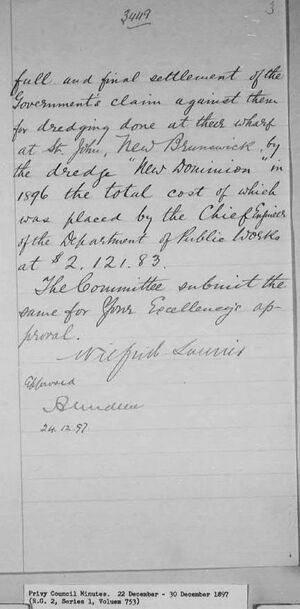 3449
3
full and final settlement of the
Government's claim against them
for dredging done at their wharf
at St. John, New Brunswick, by
the dredge "New Dominion" in
1896 the total cost of which
was placed by the Chief Engineer
of the Department of Public Works
at $2,121.83.
The Committee submit the
same for Your Excellency's ap-
proval.
Wilfrid Laurier
Approved
Aberdeen
24.12.97
Privy Council Minutes. 22 December - 30 December 1897
(R.G. 2, Series 1, Voluem 753)